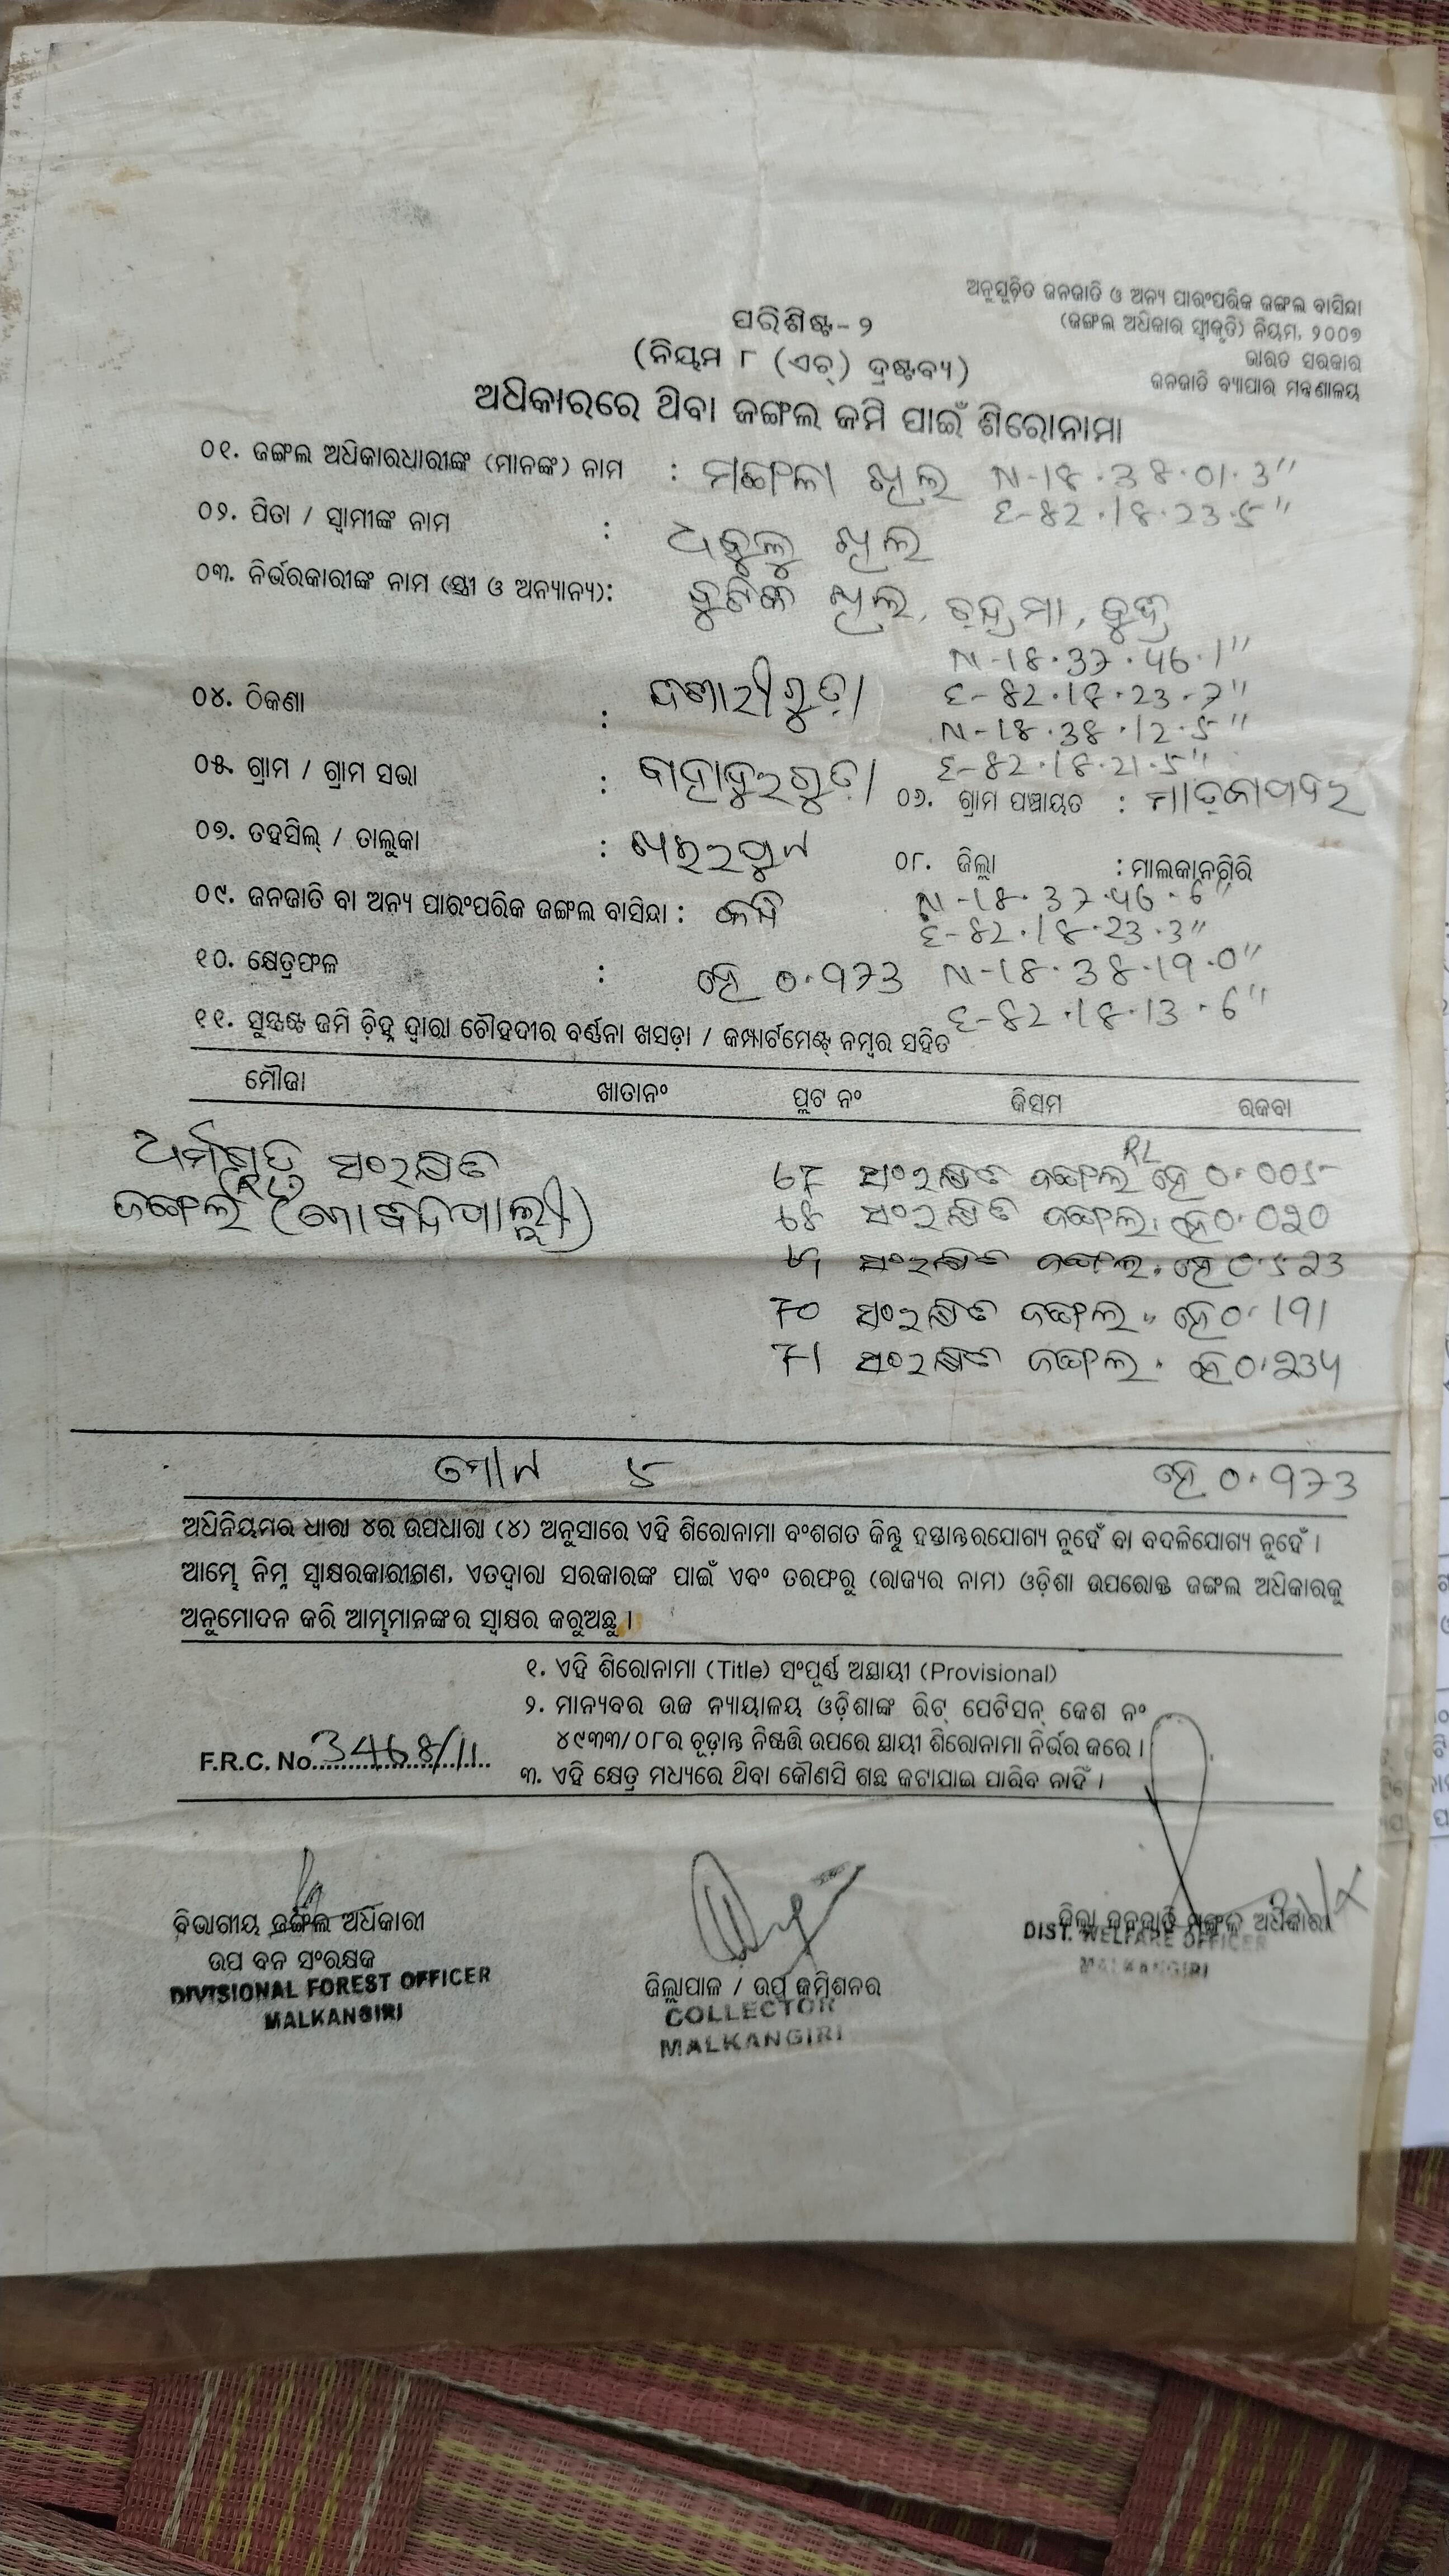 ଅନୁସୂଚିତ ଜନଜାତି ଓ ଅନ୍ୟ ପାରଂପରିକ ଜଙ୍ଗଲ ବାସିନ୍ଦା
(ଜଙ୍ଗଲ ଅଧିକାର ସ୍ୱୀକୃତି) ନିୟମ, ୨୦୦୭
ଭାରତ ସରକାର
ଜନଜାତି ବ୍ୟାପାର ମନ୍ତ୍ରଣାଳୟ
ପରିଶିଷ୍ଟ-୨
(ନିୟମ ୮ (ଏଚ୍) ଦ୍ରଷ୍ଟବ୍ୟ)
ଅଧିକାରରେ ଥିବା ଜଙ୍ଗଲ ଜମି ପାଇଁ ଶିରୋନାମା
୦୧. ଜଙ୍ଗଲ ଅଧିକାରଧାରୀଙ୍କ (ମାନଙ୍କ) ନାମ : ମଙ୍ଗଳା ଖିଲ N-18.38.01.3"
E-82.18.23.5"
୦୨. ପିତା / ସ୍ୱାମୀଙ୍କ ନାମ : ଧବୁଲୁ ଖିଲ
୦୩. ନିର୍ଭରକାରୀଙ୍କ ନାମ (ସ୍ତ୍ରୀ ଓ ଅନ୍ୟାନ୍ୟ): ଖିଲ, ଚନ୍ଦ୍ରମା,
N-18.37.46.1"
୦୪. ଠିକଣା : E-82.18.23.7"
N-18.38.12.5"
E-82.18.21.5"
୦୫. ଗ୍ରାମ / ଗ୍ରାମ ସଭା : ବାହାଦୁରଗୁଡ଼ା ୦୬. ଗ୍ରାମ ପଞ୍ଚାୟତ : ମାଡ଼କାପଦର
୦୭. ତହସିଲ୍ / ତାଲୁକା : ଖଇରପୁଟ ୦୮. ଜିଲ୍ଲା : ମାଲକାନଗିରି
N-18.37.46.6"
୦୯. ଜନଜାତି ବା ଅନ୍ୟ ପାରଂପରିକ ଜଙ୍ଗଲ ବାସିନ୍ଦା : E-82.18.23.3"
୧୦. କ୍ଷେତ୍ରଫଳ : ହେ 0.973 N-18.38.19.0"
E-82.18.13.6"
୧୧. ସୁସ୍ପଷ୍ଟ ଜମି ଚିହ୍ନ ଦ୍ୱାରା ଚୌହଦୀର ବର୍ଣ୍ଣନା ଖସଡ଼ା / କମ୍ପାର୍ଟମେଣ୍ଟ୍ ନମ୍ବର ସହିତ
ମୌଜା ଖାତାନଂ ପ୍ଲଟ ନଂ କିସମ ରକବା
ସଂରକ୍ଷିତ
ଜଙ୍ଗଲ
RL
67 ସଂରକ୍ଷିତ ଜଙ୍ଗଲ ହେ 0.005
68 ସଂରକ୍ଷିତ ଜଙ୍ଗଲ ହେ 0.020
69 ସଂରକ୍ଷିତ ଜଙ୍ଗଲ ହେ 0.523
70 ସଂରକ୍ଷିତ ଜଙ୍ଗଲ ହେ 0.191
71 ସଂରକ୍ଷିତ ଜଙ୍ଗଲ ହେ 0.234
ମୋଟ 5 ହେ 0.973
ଅଧିନିୟମର ଧାରା ୪ର ଉପଧାରା (୪) ଅନୁସାରେ ଏହି ଶିରୋନାମା ବଂଶଗତ କିନ୍ତୁ ହସ୍ତାନ୍ତରଯୋଗ୍ୟ ନୁହେଁ ବା ବଦଳିଯୋଗ୍ୟ ନୁହେଁ ।
ଆମ୍ଭେ ନିମ୍ନ ସ୍ୱାକ୍ଷରକାରୀଗଣ, ଏତଦ୍ୱାରା ସରକାରଙ୍କ ପାଇଁ ଏବଂ ତରଫରୁ (ରାଜ୍ୟର ନାମ) ଓଡ଼ିଶା ଉପରୋକ୍ତ ଜଙ୍ଗଲ ଅଧିକାରକୁ
ଅନୁମୋଦନ କରି ଆମ୍ଭମାନଙ୍କର ସ୍ୱାକ୍ଷର କରୁଅଛୁ ।
୧. ଏହି ଶିରୋନାମା (Title) ସଂପୂର୍ଣ୍ଣ ଅସ୍ଥାୟୀ (Provisional)
୨. ମାନ୍ୟବର ଉଚ୍ଚ ନ୍ୟାୟାଳୟ ଓଡ଼ିଶାଙ୍କ ରିଟ୍ ପେଟିସନ୍ କେଶ ନଂ
୪୯୩୩/୦୮ର ଚୂଡ଼ାନ୍ତ ନିଷ୍ପତ୍ତି ଉପରେ ସ୍ଥାୟୀ ଶିରୋନାମା ନିର୍ଭର କରେ ।
F.R.C. No. 3468/11
୩. ଏହି କ୍ଷେତ୍ର ମଧ୍ୟରେ ଥିବା କୌଣସି ଗଛ କଟାଯାଇ ପାରିବ ନାହିଁ ।
ବିଭାଗୀୟ ଜଙ୍ଗଲ ଅଧିକାରୀ
ଉପ ବନ ସଂରକ୍ଷକ
DIVISIONAL FOREST OFFICER
MALKANGIRI
ଜିଲ୍ଲାପାଳ / ଉପ କମିଶନର
COLLECTOR
MALKANGIRI
ଜିଲ୍ଲା ଜନଜାତି ମଙ୍ଗଳ ଅଧିକାରୀ
DIST. WELFARE OFFICER
MALKANGIRI